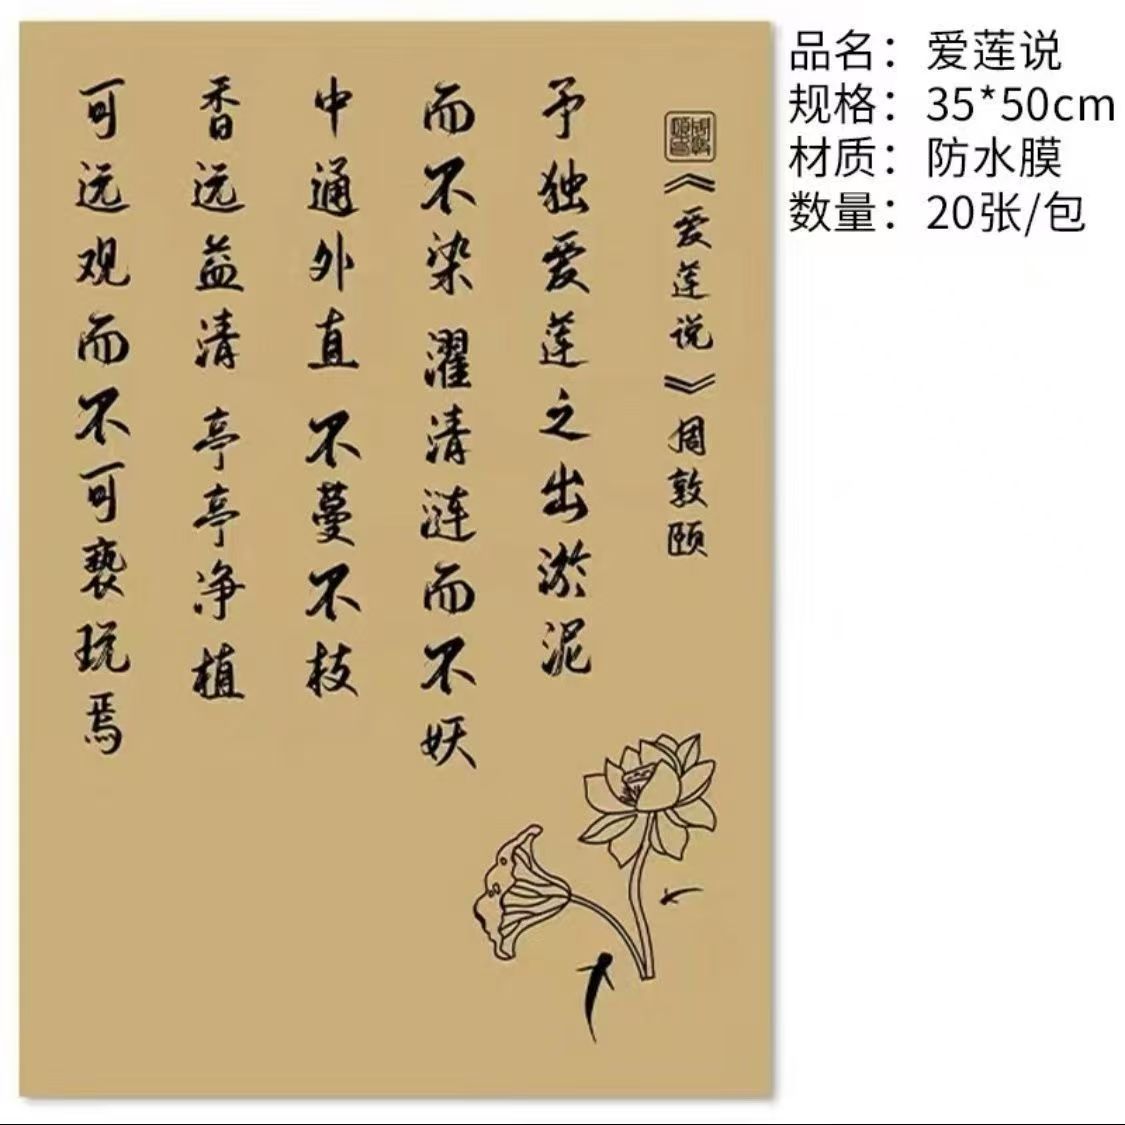 《爱莲说》周敦颐
予独爱莲之出淤泥
而不染 濯清涟而不妖
中通外直 不蔓不枝
香远益清 亭亭净植
可远观而不可亵玩焉
品名：爱莲说
规格：35*50cm
材质：防水膜
数量：20张/包